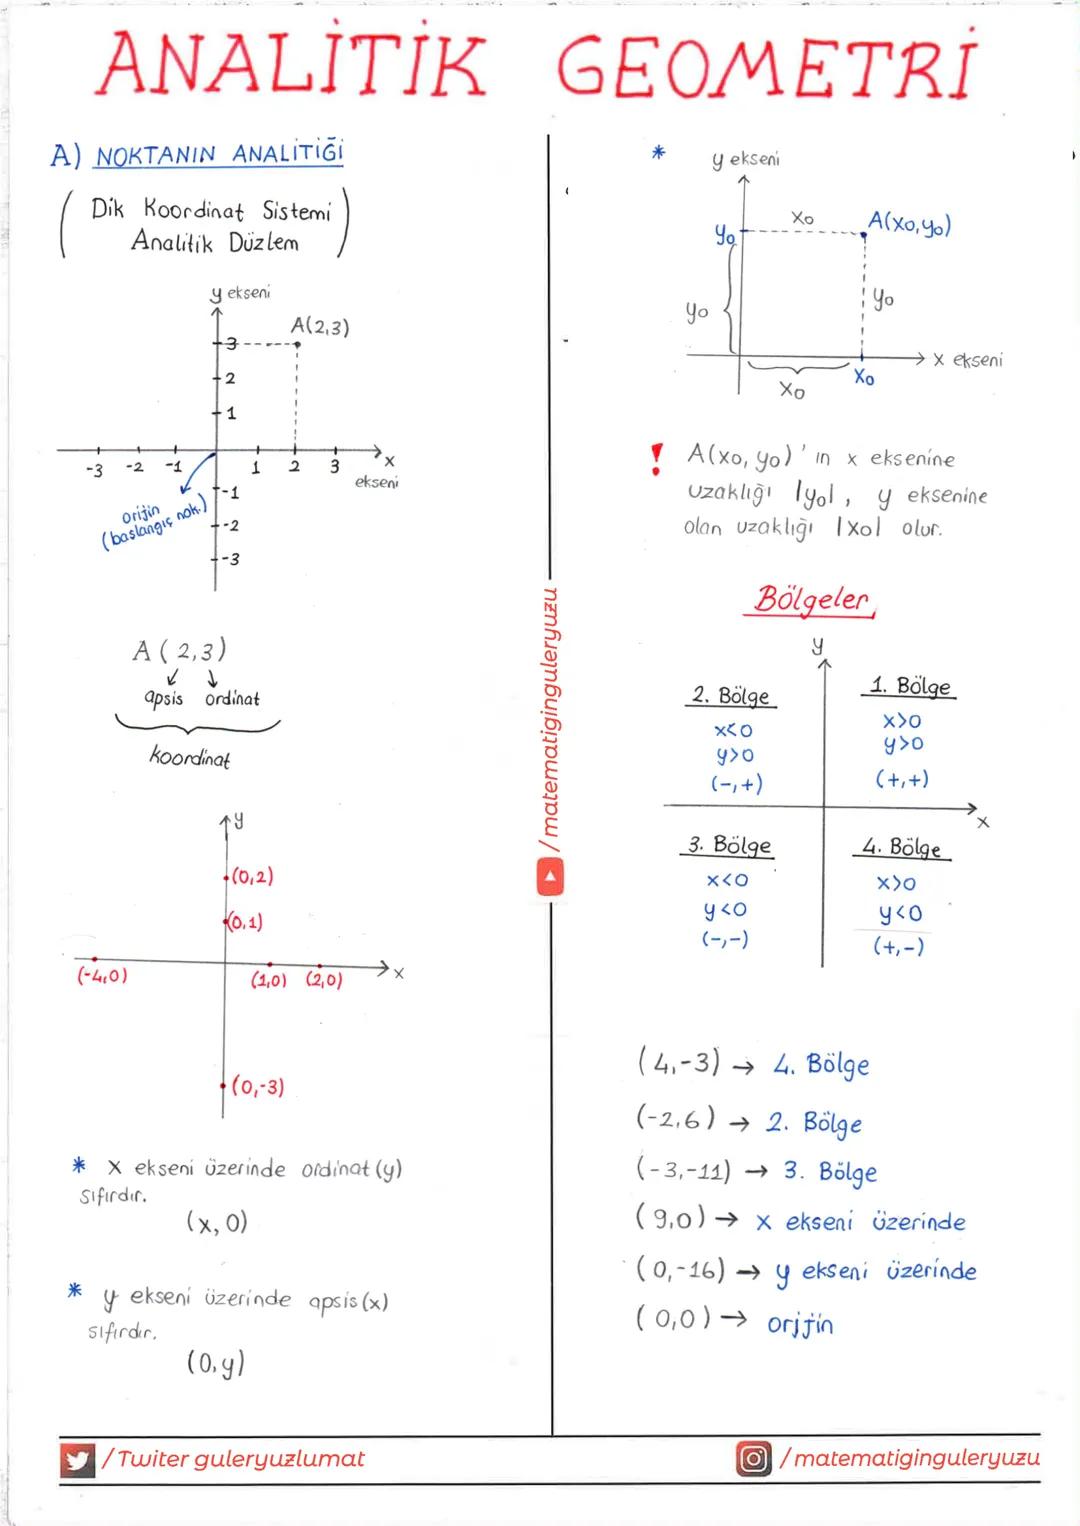 ANALİTİK GEOMETRİ
A) NOKTANIN ANALİTİĞİ
( Dik Koordinat Sistemi
Analitik Düzlem )
y ekseni
A(2,3)
3
2
1
-3 -2 -1 1 2 3 x
ekseni
orijin
(başlangıç nok.)
-1
-2
-3
A ( 2,3)
apsis ordinat
koordinat
y
(0,2)
(0,1)
(-4,0) (1,0) (2,0) x
(0,-3)
* x ekseni üzerinde ordinat (y)
sıfırdır.
(x, 0)
* y ekseni üzerinde apsis (x)
sıfırdır.
(0,y)
/matematiginguleryuzu
*
y ekseni
y₀ x₀ A(x₀,y₀)
y₀ y₀
x ekseni
x₀ x₀
! A(x₀, y₀)'ın x eksenine
uzaklığı |y₀|, y eksenine
olan uzaklığı |x₀| olur.
Bölgeler
y
2. Bölge
x<0
y>0
(-,+)
1. Bölge
x>0
y>0
(+,+)
x
3. Bölge
x<0
y<0
(-,-)
4. Bölge
x>0
y<0
(+,-)
(4,-3) → 4. Bölge
(-2,6) → 2. Bölge
(-3,-11) → 3. Bölge
(9,0) → x ekseni üzerinde
(0,-16) → y ekseni üzerinde
(0,0) → orijin
/Twiter guleryuzlumat
/matematiginguleryuzu